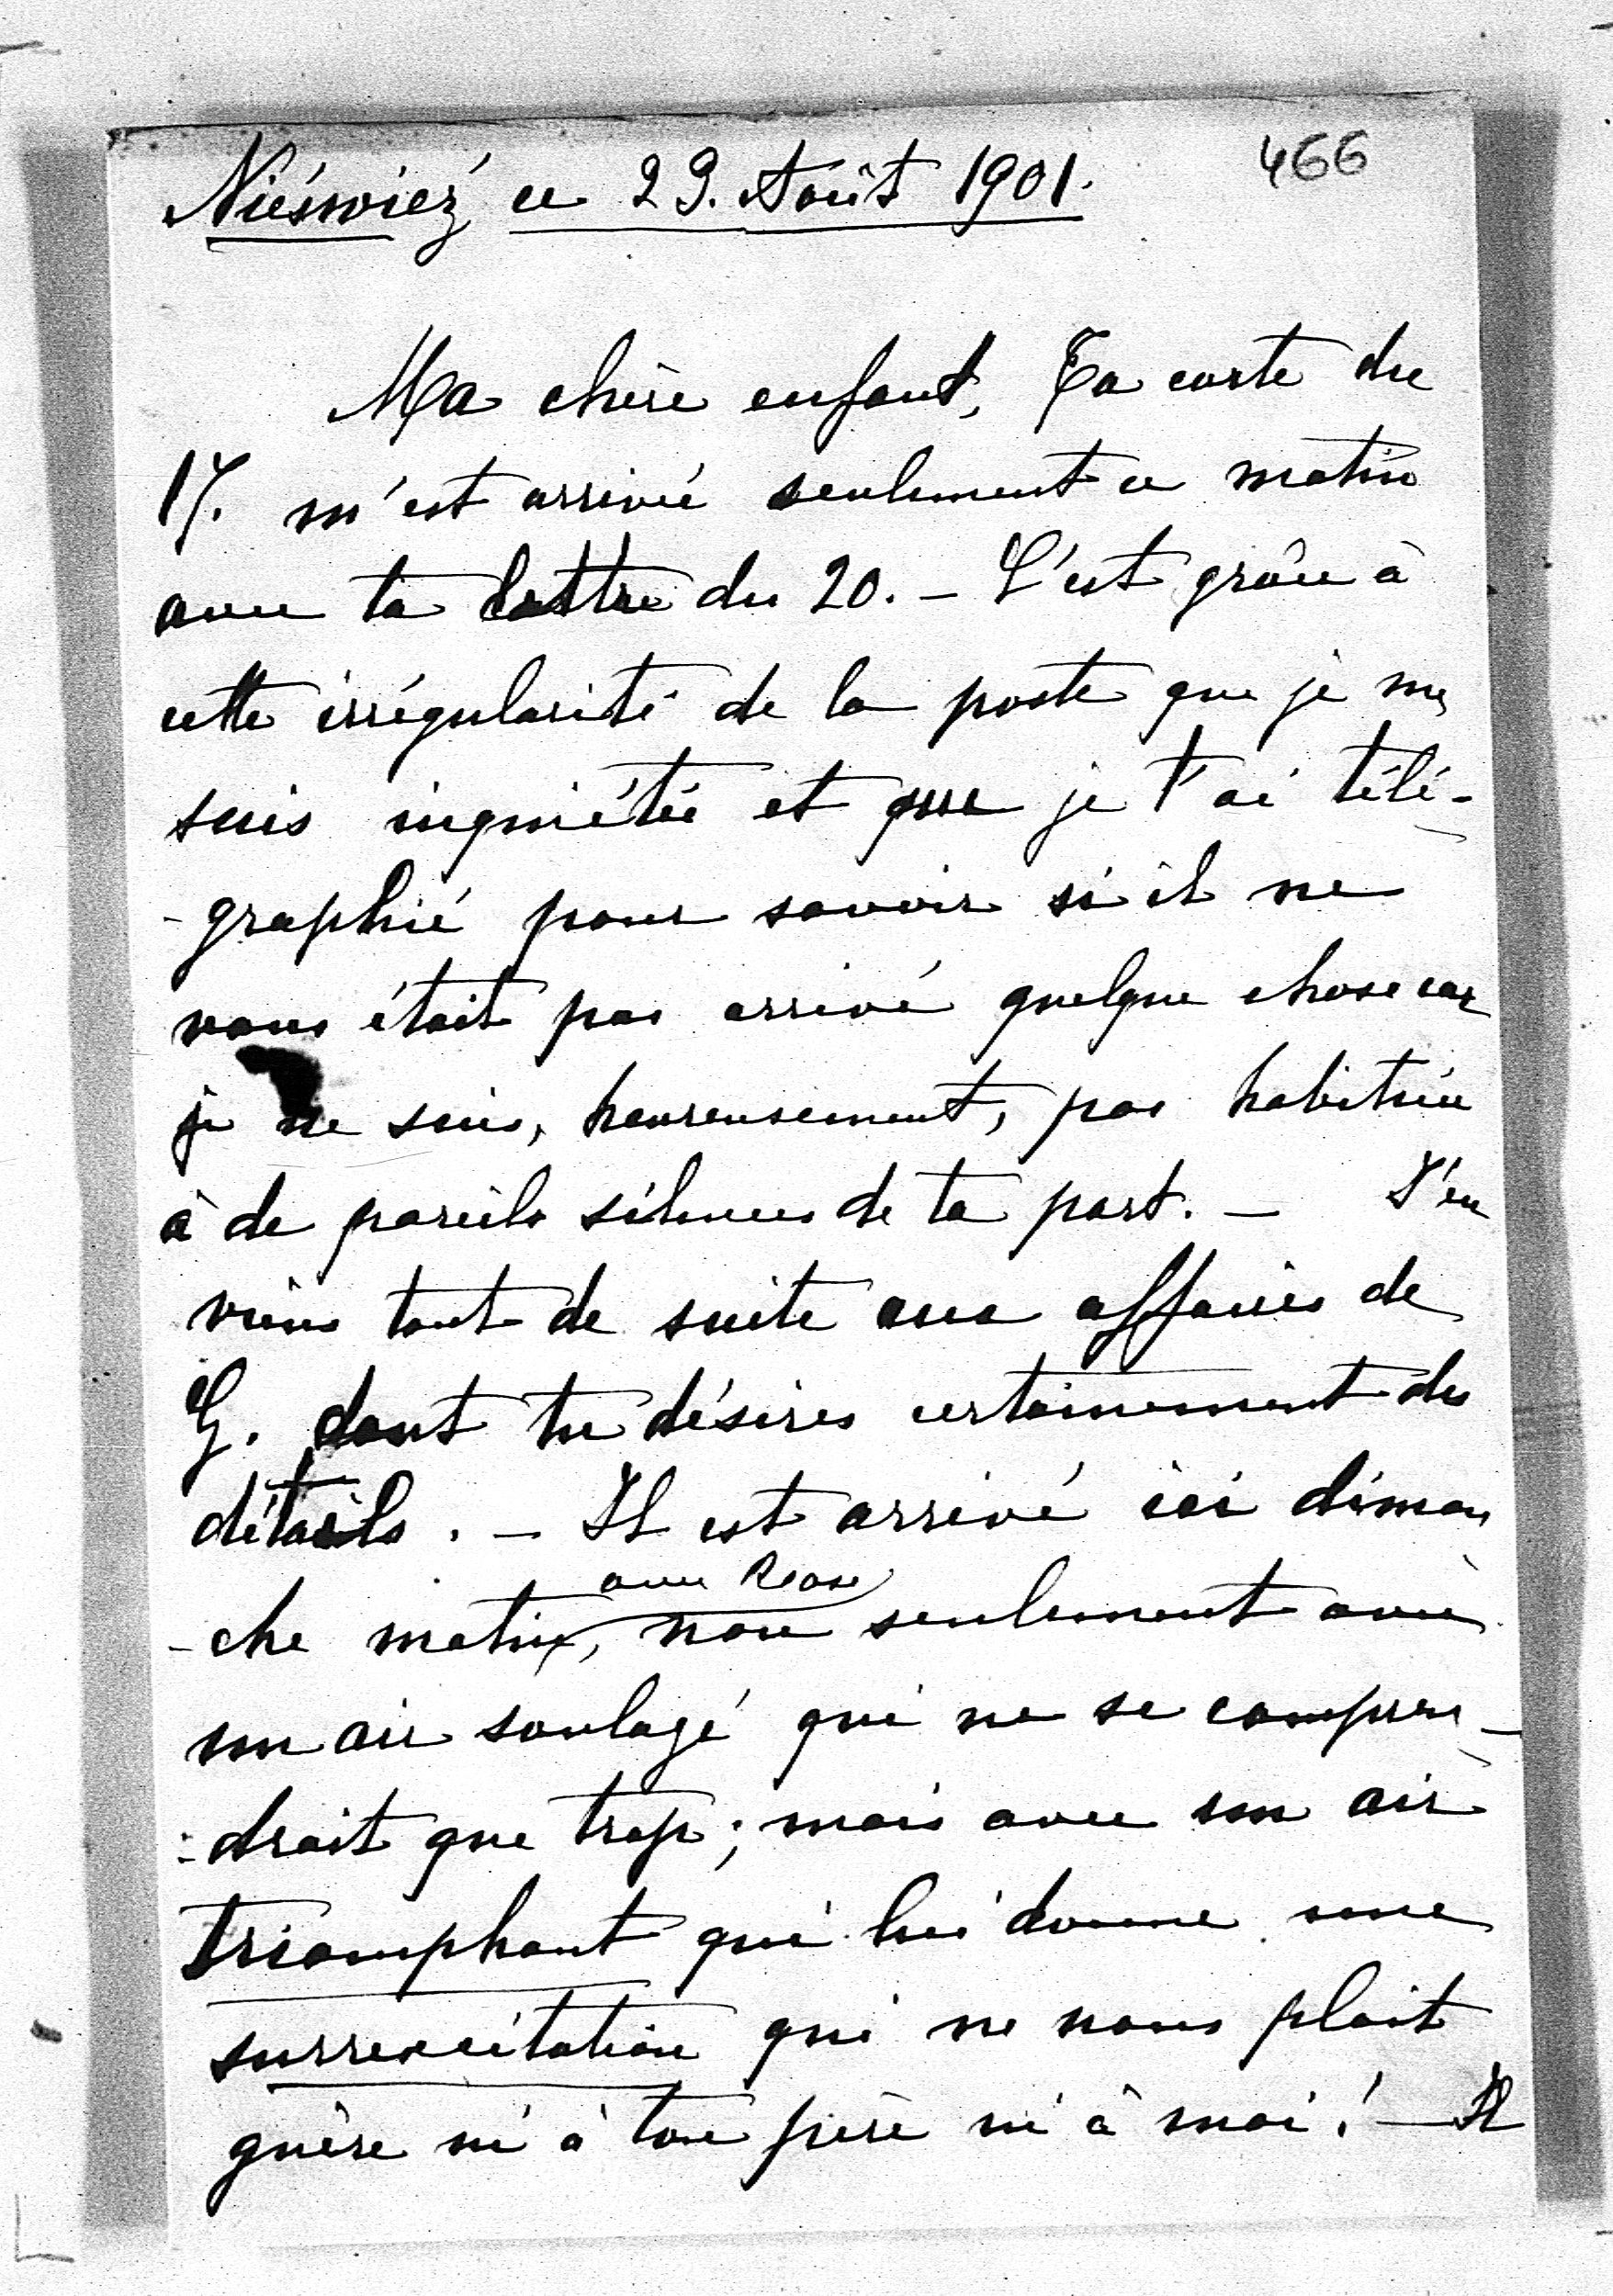 466
Nieśwież ce 29. Août 1901.
Ma chère enfant, Ta carte du
17. m'est arrivée seulement ce matin
avec ta lettre du 20. – C'est grâce à
cette irrégularité de la poste que je me
suis inquiétée et que je t'ai télé-
-graphié pour savoir si il ne
vous était pas arrivé quelque chose car
je ne suis, heureusement, pas habituée
à de pareils silences de ta part. – J'en
viens tout de suite aux affaires de
G. dont tu désires certainement des
détails. – Il est arrivé ici diman
avec Rose
-che matin, non seulement avec
un air soulagé qui ne se compren-
-drait que trop; mais avec un air
triomphant qui lui donne une
surrexcitation qui ne nous plait
guère ni à ton père ni à moi! – Il